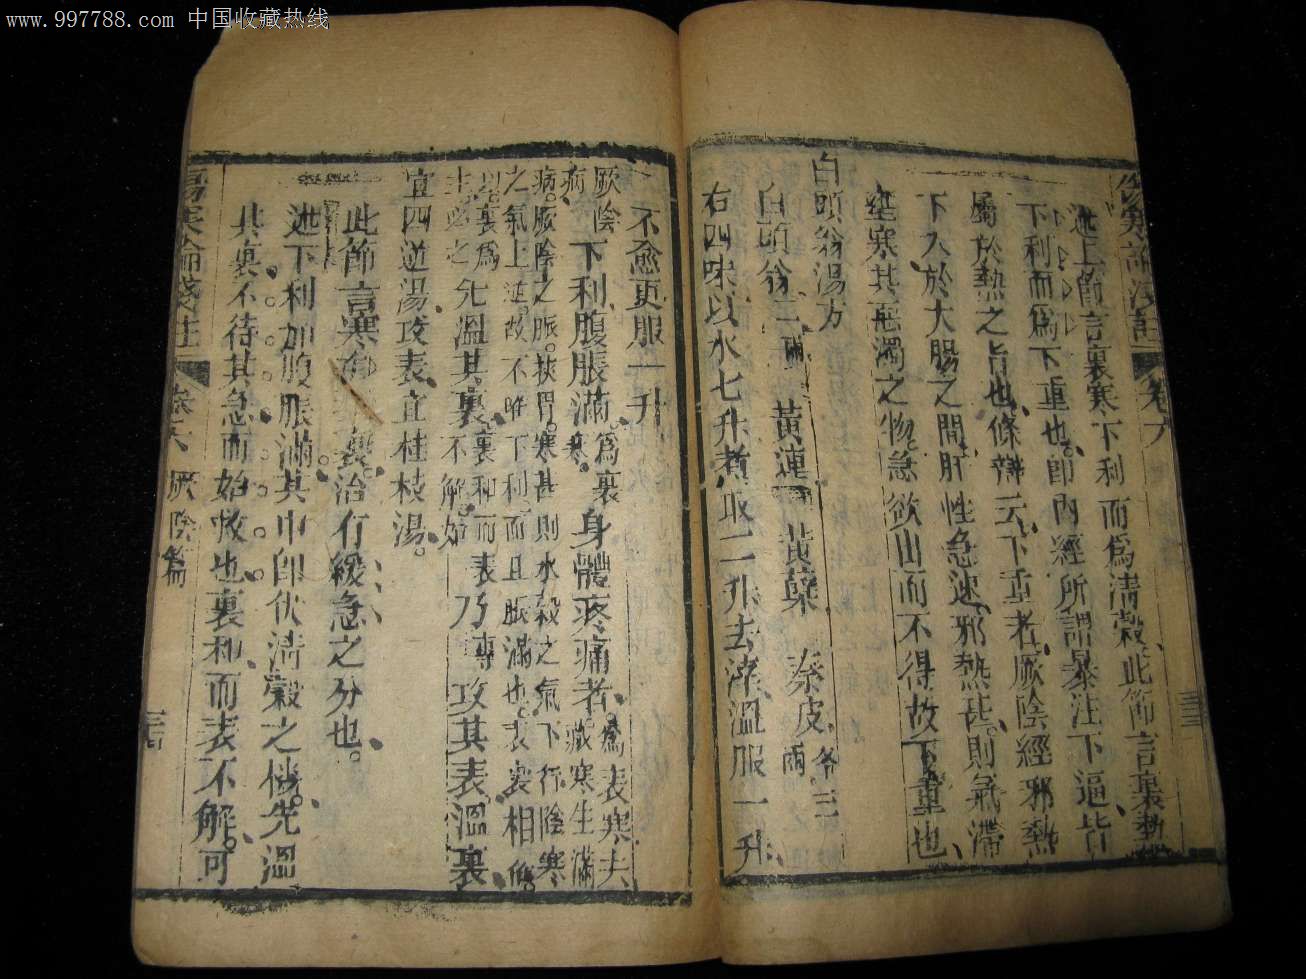 www.997788.com 中国收藏热线
述上節言裏寒下利而為清穀此節言裏熱
下利而為下重也即內經所謂暴注下逼皆
屬於熱之旨也條辨云下重者厥陰經邪熱
下入於大腸之間肝性急速邪熱甚則氣滯
壅塞其惡濁之物急欲出而不得故下重也
白頭翁湯方
白頭翁二兩 黃連 黃蘗 秦皮各三兩
右四味以水七升煮取二升去滓溫服一升
不愈更服一升
厥陰病下利腹脹滿為裏寒身體疼痛者為表寒夫藏寒生滿
病厥陰之脈挾胃寒甚則水穀之氣下行陰寒
之氣上逆故不唯下利而且脹滿也表裏相
以裏為主必之先溫其裏裏和而表不解始乃專攻其表溫裏
宜四逆湯攻表宜桂枝湯
此節言寒在裏治有緩急之分也
述下利加脹滿其中即伏清穀之機先溫
其裏不待其急而始救也裏和而表不解可
傷寒論淺註 卷六 厥陰篇